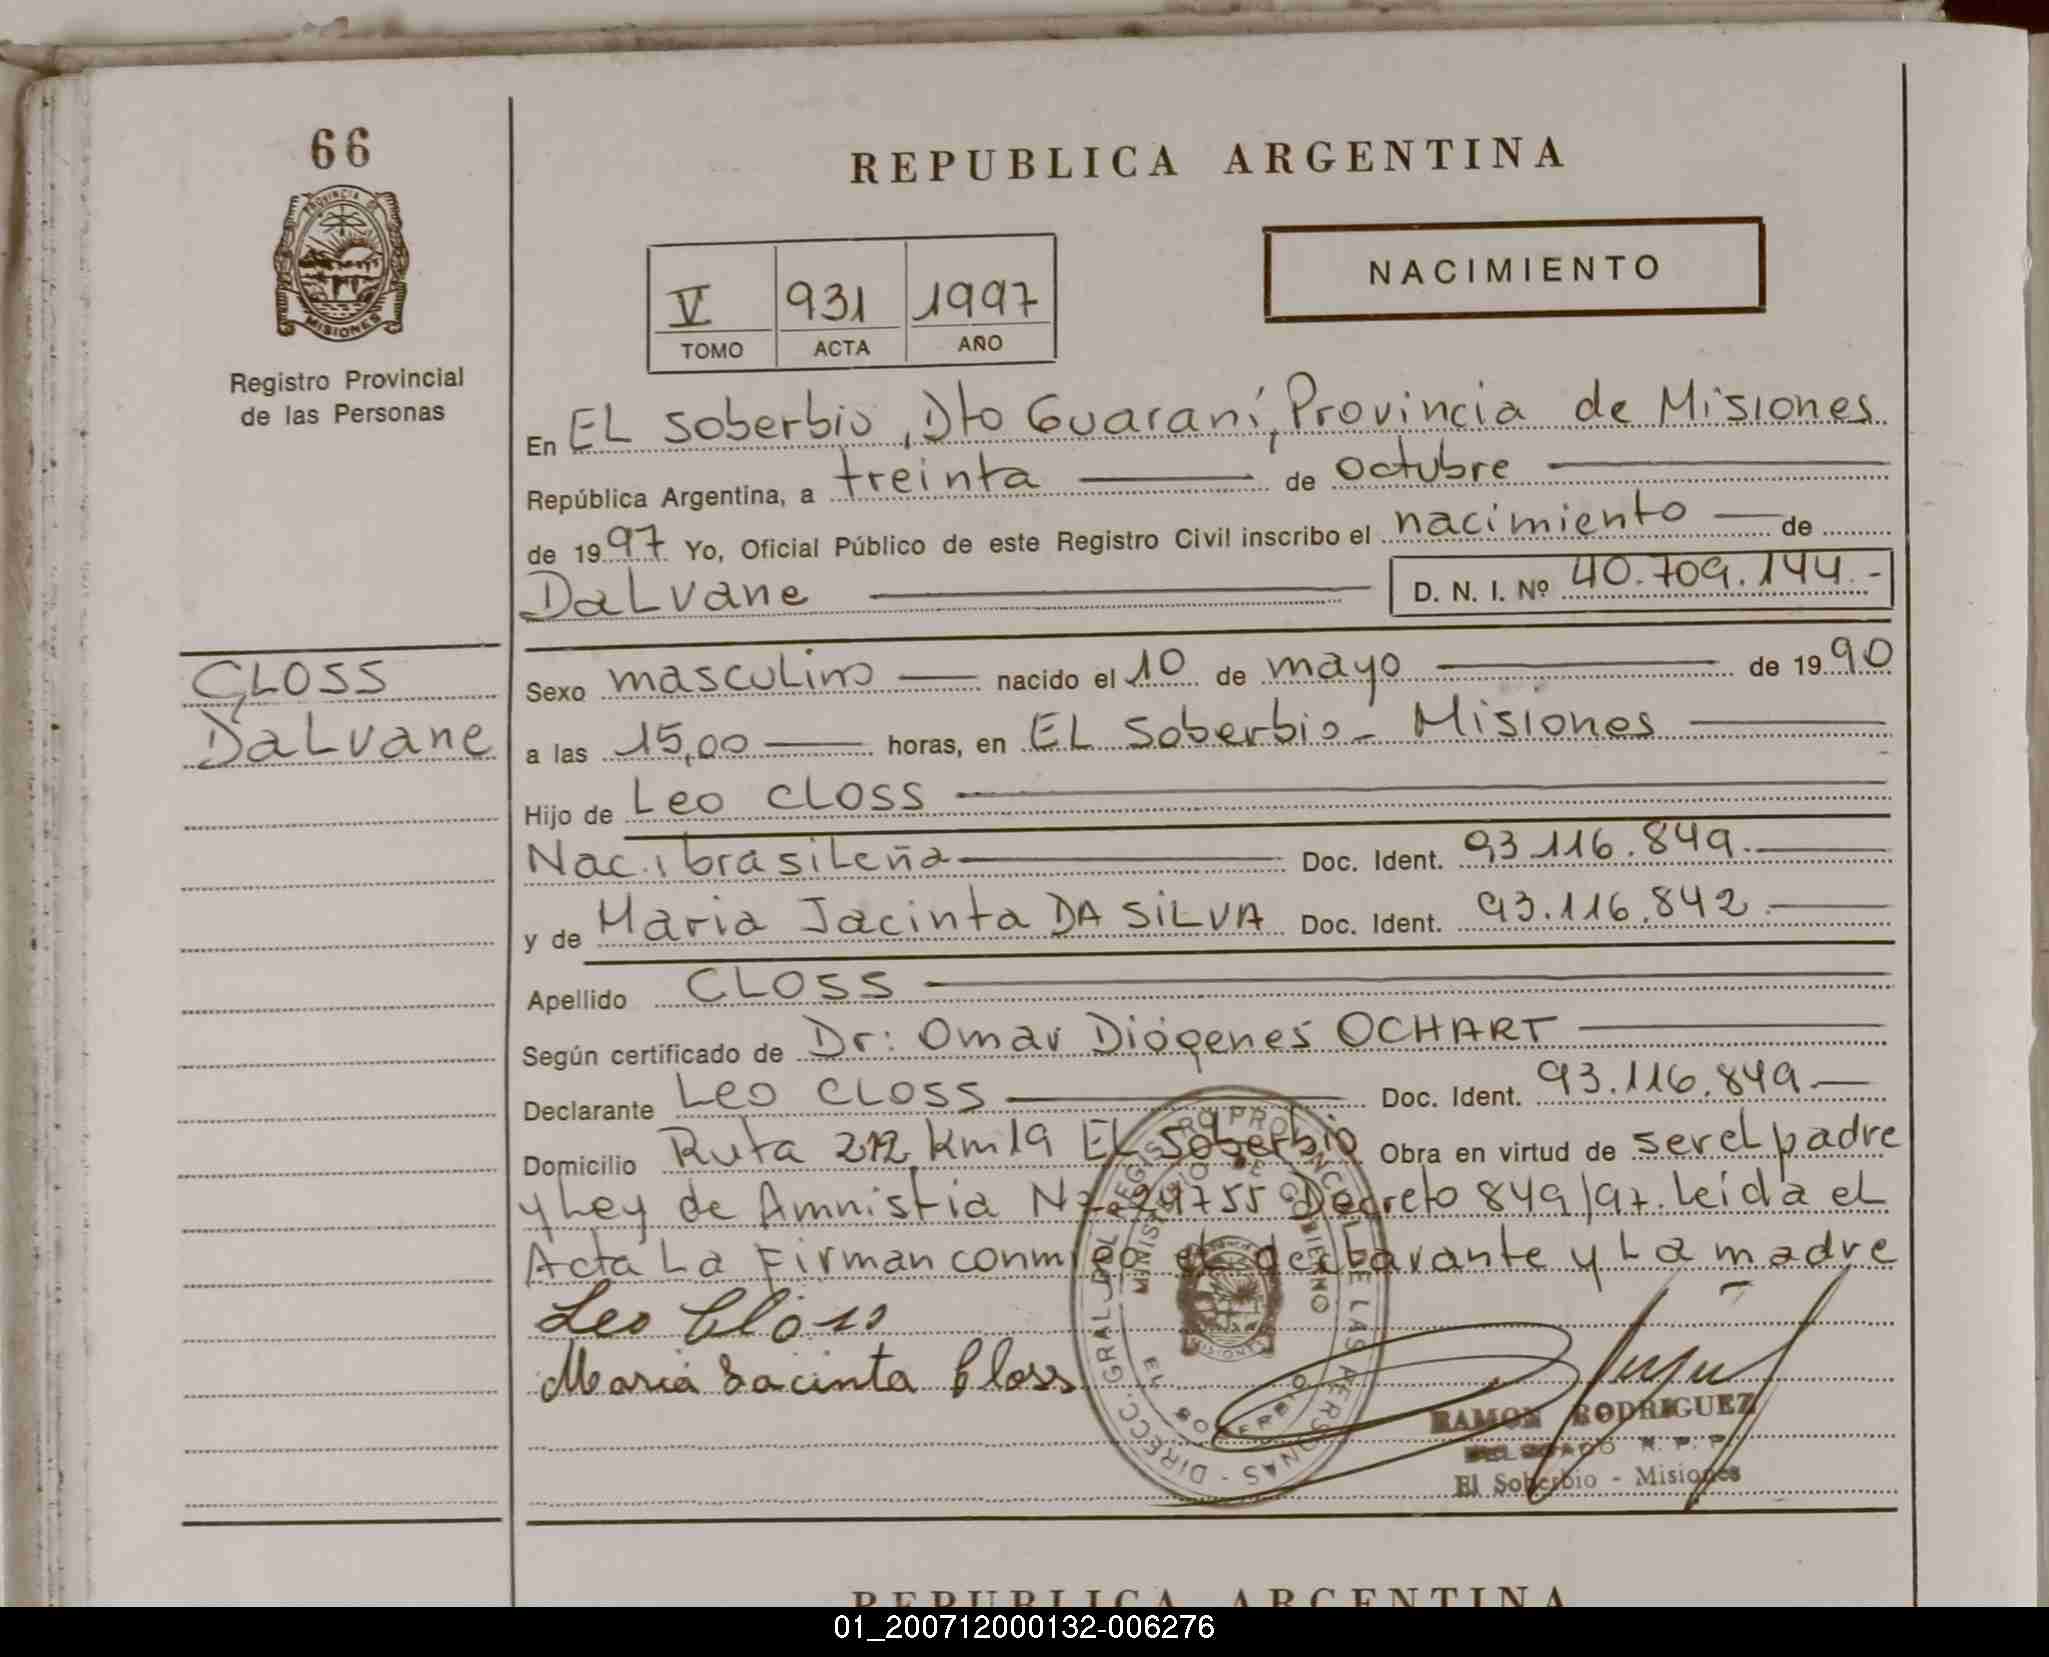 66
PROVINCIA DE
MISIONES
Registro Provincial
de las Personas
REPUBLICA ARGENTINA
V 931 1997
TOMO ACTA AÑO
NACIMIENTO
En EL Soberbio, Dto Guaraní, Provincia de Misiones
República Argentina, a treinta de octubre
de 1997 Yo, Oficial Público de este Registro Civil inscribo el nacimiento de
DaLvane D. N. I. Nº 40.709.144.-
CLOSS
DaLvane
Sexo masculino nacido el 10 de mayo de 1990
a las 15,00 horas, en EL Soberbio - Misiones
Hijo de Leo CLOSS
Nac. brasileña Doc. Ident. 93.116.849.
y de Maria Jacinta DA SILVA Doc. Ident. 93.116.842.
Apellido CLOSS
Según certificado de Dr: Omar Diógenes OCHART
Declarante Leo CLOSS Doc. Ident. 93.116.849
Domicilio Ruta 212 km 19 EL Soberbio Obra en virtud de ser el padre
y Ley de Amnistia Nº 24755 Decreto 849/97. Leída el
Acta La Firman conmigo el declarante y La madre
Leo Closs
Maria Jacinta Closs
DIRECC. GRAL. DEL REGISTRO PROVINCIAL DE LAS PERSONAS
MINISTERIO DE GOBIERNO
EL SOBERBIO
MISIONES
RAMON RODRIGUEZ
DELEGADO R. P. P.
El Soberbio - Misiones
REPUBLICA ARGENTINA
01_200712000132-006276